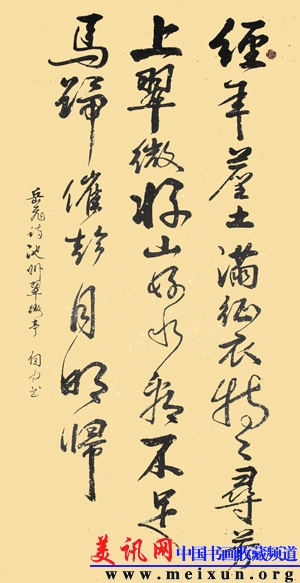 經年塵土滿征衣特々尋芳
上翠微好山好水看不足
馬蹄催趁月明歸
岳飛詩池州翠微亭 力书
美讯网 中国书画收藏频道
www.meixun.org